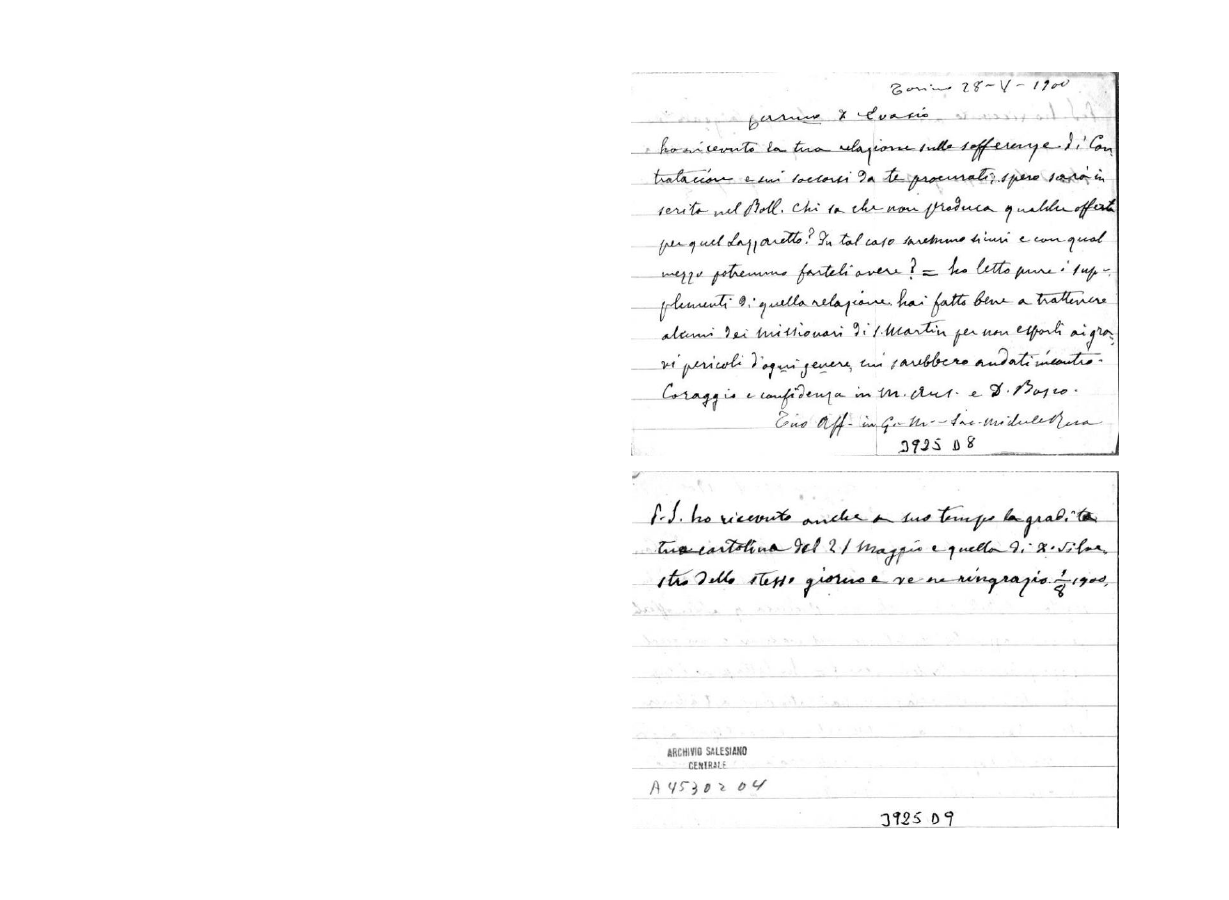 Torino 28-V-1900
Carissimo D. Evasio
ho ricevuto la tua relazione sulle sofferenze di Con
tratacion e sui soccorsi da te procurati; spero sarà in
serita nel Boll. Chi sa che non produca qualche offerta
per quel Lazzaretto? In tal caso saremmo sicuri e con qual
mezzo potremmo farteli avere? = ho letto pure i sup-
plementi di quella relazione. hai fatto bene a trattenere
alcuni dei missionari di S. Martin per non esporli ai gra,
vi pericoli d'ogni genere, cui sarebbero andati incontro.
Coraggio e confidenza in M. Aus. e D. Bosco.
Tuo Aff. in G. M. - Sac. Michele Rua
3925 D8
P.S. ho ricevuto anche a suo tempo la gradita
tua cartolina del 21 Maggio e quella di D. Silve,
stro dello stesso giorno e ve ne ringrazio 1/8 1900,
ARCHIVIO SALESIANO
CENTRALE
A 45302 04
3925 D9